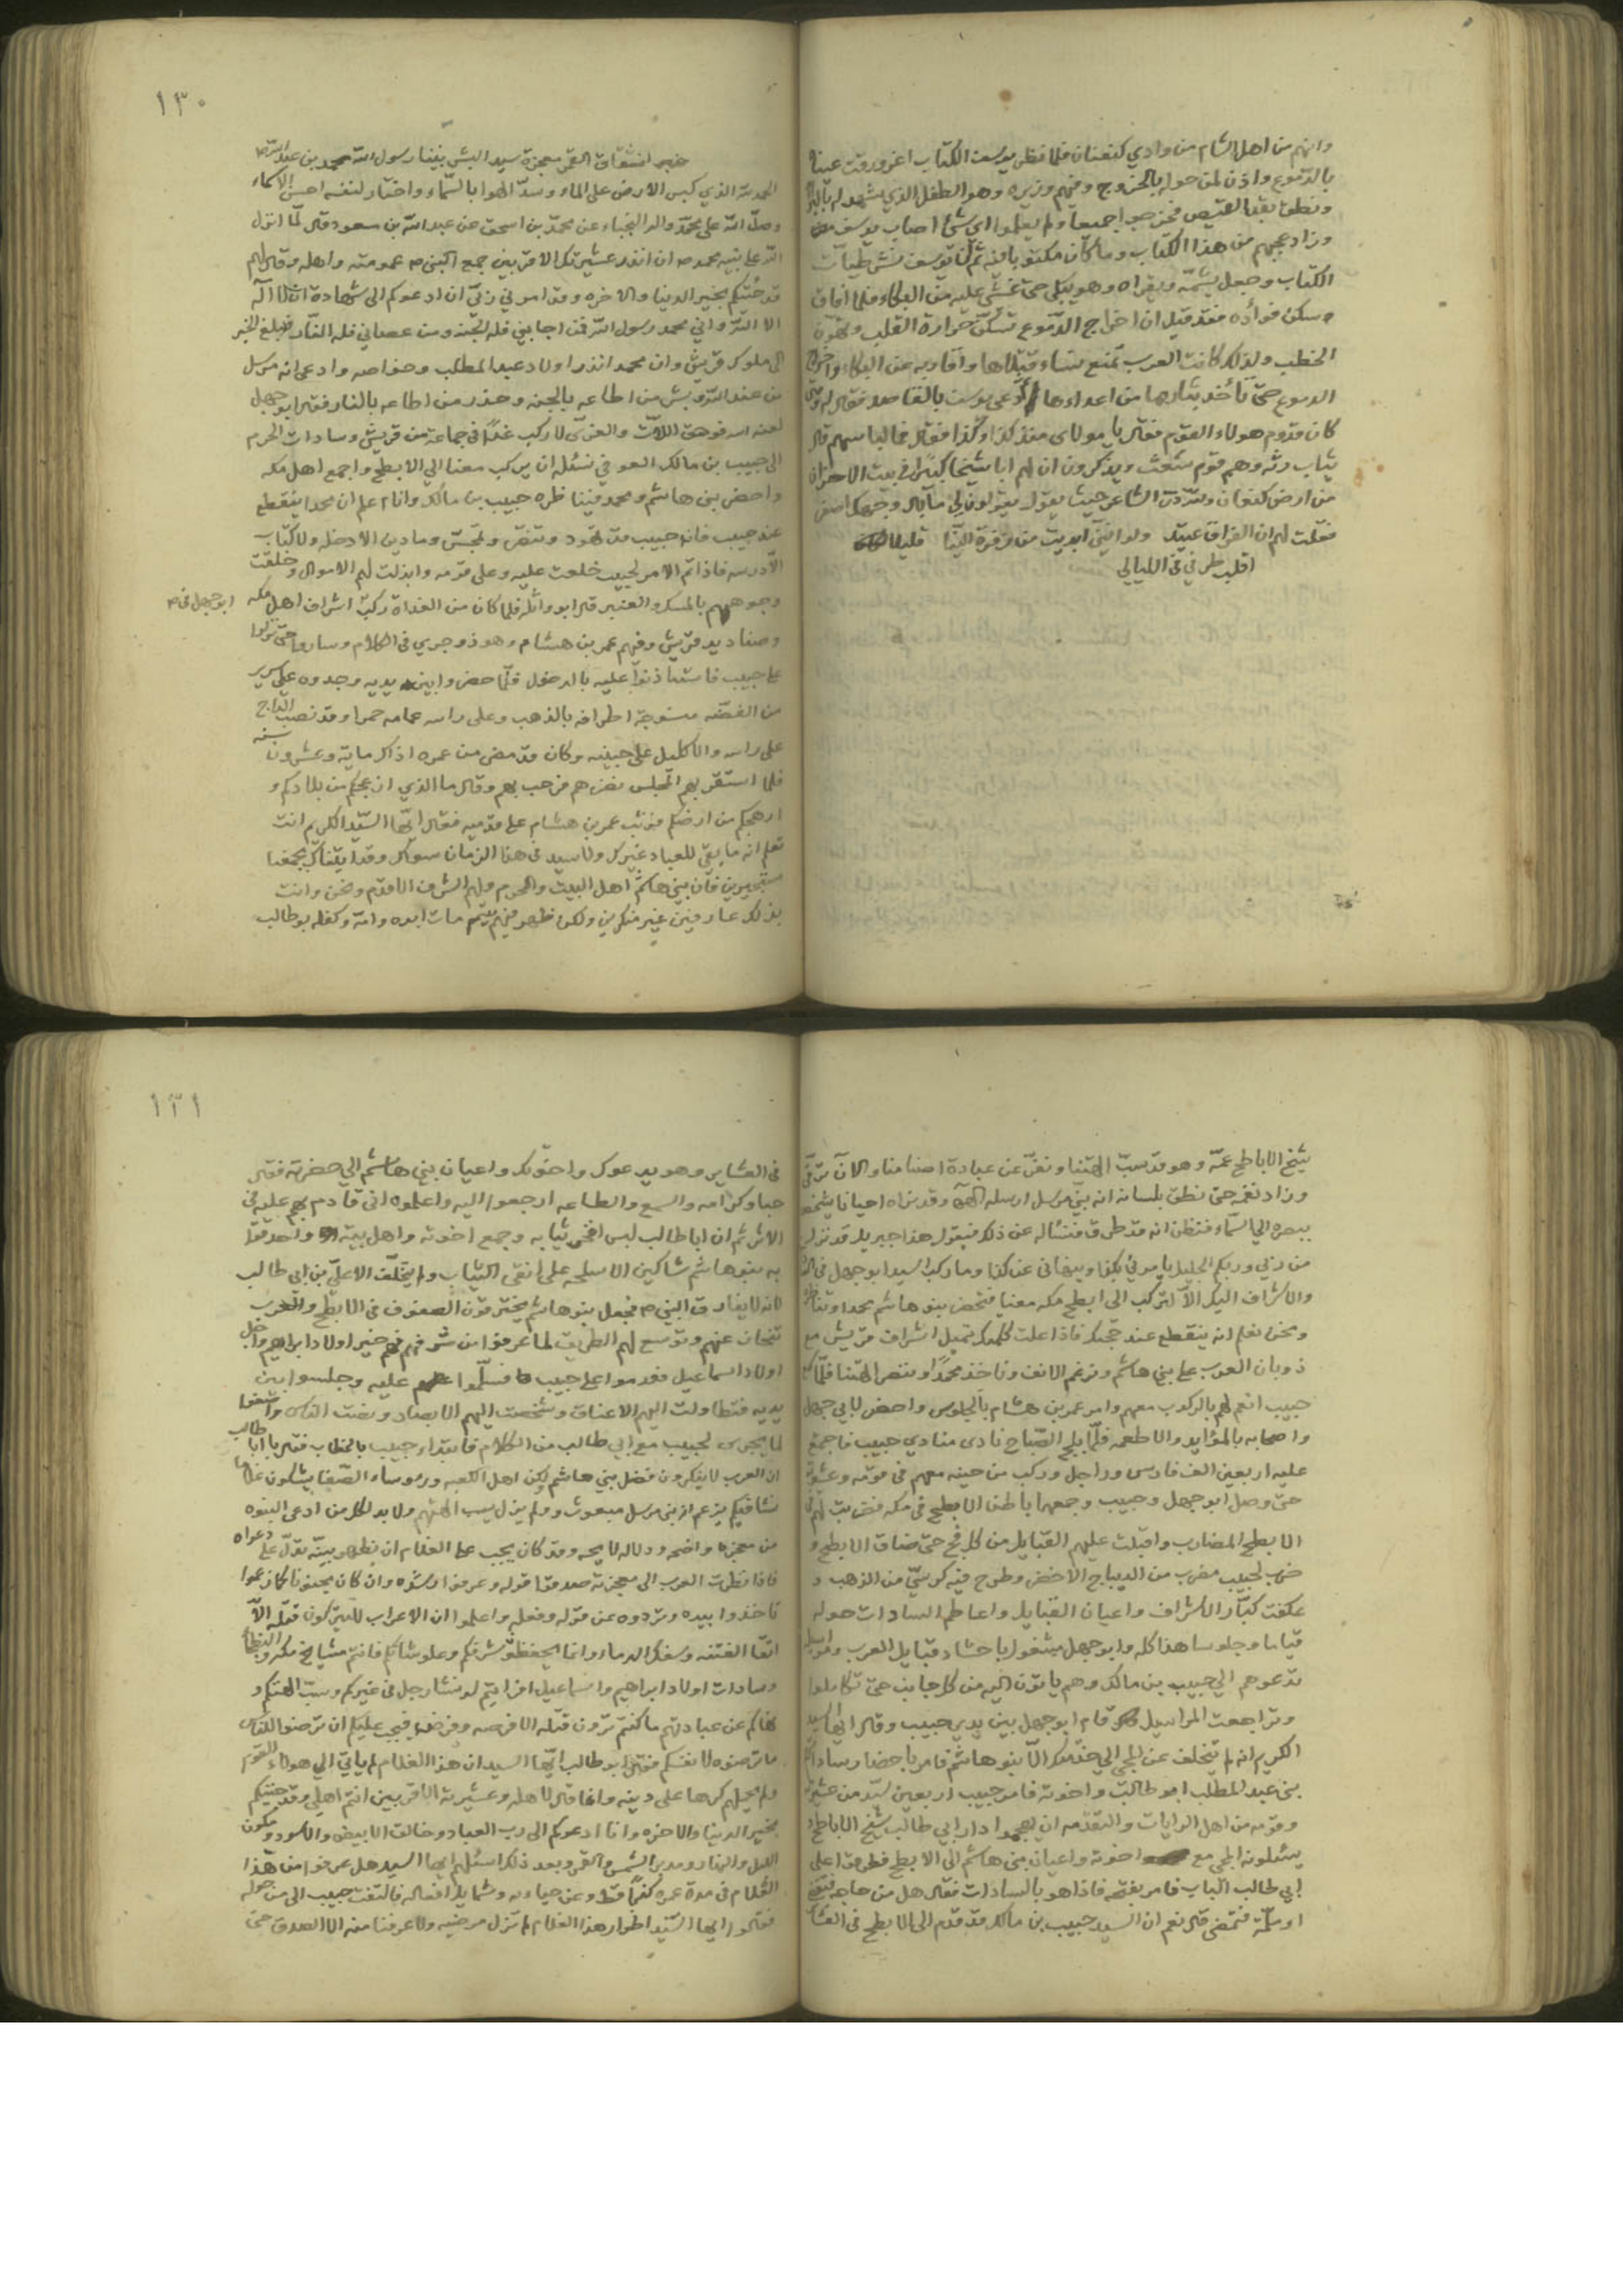 وانهم من اهل الشام من وادي كنعان فلما نظر يوسف الكتاب اغرورقت عيناه
بالدموع واذن لمن حوله بالخروج وفيهم وزيره وهو الطفل الذي شهد له
ونطق بقد القميص فخرجوا جميعا ولم يعلموا اي شئ اصاب يوسف
وزاد عجبهم من هذا الكتاب وما كان مكتوبا فيه ثم ان يوسف نشر طيات
الكتاب وجعل يشمه ويقراه وهو يبكي حتى غشي عليه من البكاء فلما افاق
وسكن فواده فقد قيل ان اخراج الدموع تسكن حرارة القلب وتهون
الخطب ولذلك كانت العرب تمنع نساء قتلاها واقاربه عن البكاء واخراج
الدموع حتى تأخذ بثارها من اعداءها ودعى يوسف بالقاصد فقال له
كان قدوم هولاء القوم فقال يا مولاي منذ كذا وكذا فقال فما لباسهم قال
ثياب رثه وهم قوم شعث ويذكرون ان لهم ابا شيخا كبيرا في بيت الاحزان
من ارض كنعان ولله در الشاعر حيث يقول يقولون لي ما بال وجهك اصفر
فقلت لهم ان الفراق عبيد
اقلب طرفي في الليالي
١٣٠
خبر انشقاق القمر معجزة سيد البشر نبينا رسول الله محمد بن عبد الله
الحمد لله الذي كبس الارض على الماء وسد الهوا بالسماء واختار لنفسه احسن الاسماء
وصل الله على محمد واله النجباء عن محمد بن اسحق عن عبد الله بن مسعود قال لما انزل
الله على نبيه محمد ص ان انذر عشيرتك الاقربين جمع النبي ص عمومته واهله وقال لهم
قد جئتكم بخير الدنيا والاخره وقد امرني ربي ان ادعوكم الى شهادة ان لا اله
الا الله واني محمد رسول الله فمن اجابني فله الجنه ومن عصاني فله النار فبلغ الخبر
الى ملوك قريش وان محمد انذر اولاد عبد المطلب وخواصه وادعى انه مرسل
من عند الله وبشر من اطاعه بالجنه وحذر من اطاعه بالنار فقال ابو جهل
لعنه الله فوحق اللات والعزى لاركب غدا في جماعة من قريش وسادات الحرم
الى حبيب بن مالك العوفي نسئله ان يركب معنا الي الابطح واجمع اهل مكه
واحضر بني هاشم ومحمد فيناظره حبيب بن مالك وانا اعلم ان محمدا ينقطع
عند حبيب فان حبيب قد تهود وتنصر وتمجس وما دين الا دخله ولا كتاب
الا درسه فاذا تم الامر لحبيب خلعت عليه وعلى قومه وابذلت لهم الاموال وخلقت
وجوههم بالمسك والعنبر قال ابو واثله فلما كان من الغداة ركب اشراف اهل مكه
ابو جهل في
وصناديد قريش وفيهم عمر بن هشام وهو ذو جري في الكلام وساروا حتى نزلوا
على حبيب فاستاذنوا عليه بالدخول فلما حضروا بين يديه وجدوه على سرير
من الفضه منسوجة اطرافه بالذهب وعلى راسه عمامه حمرا وقد نصب التاج
على راسه والاكليل على جبينه وكان قد مضى من عمره اذ ذاك مايه وعشرون سنه
فلما استقر بهم المجلس نهض هم فرحب بهم وقال ما الذي ازعجكم من بلادكم و
ارهجكم من ارضكم فوثب عمر بن هشام على قدميه فقال ايها السيد الكريم انت
تعلم انه ما بقي للعباد غيرك ولا سيد في هذا الزمان سواك وقد ايتناك بجمعنا
مستجيرين فان بني هاشم اهل البيت والحرم ولهم الشرف الاقدم ونحن وانت
بذلك عارفين غير منكرين ولكن ظهر فيهم يتيم مات ابوه وامه وكفله بو طالب
شيخ الاباطح عمه وهو قد سب الهتنا ونفر عن عبادة اصنامنا والان ترقى
وزاد نغمه حتى نطق بلسانه انه نبي مرسل ارسله اله وقد نراه احيانا يشخص
ببصره الى السماء فنظن انه قد طرق فنسأله عن ذلك فيقول هذا جبريل قد نزل
من ربي وربكم الجليل يامرني بكذا وينهاني عن كذا وما ركب السيد ابو جهل في
والاشراف اليك الا لتركب الى ابطح مكه معنا فتحضر بنو هاشم محمدا وتناظر
ونحن نعلم انه ينقطع عند حججك فاذا علت كلمتك تميل اشراف قريش مع
ذوبان العرب على بني هاشم ونرغم الانف وناخذ محمدا وننصر الهتنا فلما
حبيب انعم لهم بالركوب معهم وامر عمر بن هشام بالجلوس واحضر لابي جهل
واصحابه بالموايد والاطعمه فلما بلج الصباح نادى منادي حبيب فاجمع
عليه اربعين الف فارس وراجل وركب من حينه معهم في قومه وعشيرته
حتى وصل ابو جهل وحبيب وجمعهما باطن الابطح في مكه فضربت لهم في
الابطح المضارب واقبلت عليهم القبايل من كل فج حتى ضاق الابطح و
ضرب لحبيب مضرب من الديباج الاخضر وطرح فيه كرسي من الذهب و
عكفت كبار الاشراف واعيان القبايل واعاظم السادات حوله
قياما وجلوسا هذا كله وابو جهل مشغول باحشاد قبايل العرب
تدعوهم الي حبيب بن مالك وهم ياتون اليه من كل جانب حتى تكاملوا
وتراجعت المراسيل قام ابو جهل بين يدي حبيب وقال ايها السيد
الكريم انه لم يتخلف عن المجي الي خدمتك الا بنو هاشم فامر باحضار سادات
بني عبد المطلب ابو طالب واخوته فامر حبيب اربعين سيد من عشيرته
وقومه من اهل الرايات والتقدمه ان يهجموا دار ابي طالب شيخ الاباطح
يسئلونه المجي مع اخوته واعيان بني هاشم الى الابطح فطرقوا على
ابي طالب الباب فامر بفتحه فاذا هو بالسادات فقال هل من حاجه فتقضى
او ملمة فتمضى قالو نعم ان السيد حبيب بن مالك قد قدم الى الابطح في العشائر
١٣١
في العشاير وهو يدعوك واخوتك واعيان بني هاشم الي حضرته فقال
حبا وكرامه والسمع والطاعه ارجعوا اليه واعلموه اني قادم بهم عليه في
الاثر ثم ان ابا طالب لبس افخر ثيابه وجمع اخوته واهل بيته واحدقوا
به بنو هاشم شاكين الاسلحه على انقى الثياب ولم يتخلف الا علي بن ابي طالب
لانه لا يفارق النبي ص فجعل بنو هاشم يخترقون الصفوف في الابطح والعرب
تنحاز عنهم وتوسع لهم الطريق لما عرفوا من شرفهم فهم خير اولاد ابراهيم واجل
اولاد اسماعيل فقدموا على حبيب فسلموا عليه وجلسوا بين
يديه فتطاولت اليهم الاعناق وشخصت اليهم الابصار ونصت الناس واصغوا
لما يجري لحبيب مع ابي طالب من الكلام فابتدا حبيب بالخطاب فقال يا ابا طالب
ان العرب لا ينكرون فضل بني هاشم لكن اهل الكعبه وروساء الصفا يشكون غلاما
نشا فيكم يزعم انه نبي مرسل مبعوث ولم يزل يسب الهتهم ولا بد لكل من ادعى النبوه
من معجزه واضحه ودلاله لايحه وقد كان يجب على الغلام ان يظهر بينة تدل على دعواه
فاذا نظرت العرب الى معجزته صدقوا قوله وعرفوا رشده وان كان مجنونا كما زعموا
تاخذوا بيده وتردوه عن قوله وفعله واعلموا ان الاعراب لا يتركون قتله الا
اتقاء الفتنه وسفك الدماء وانما يحفظو شرفكم وعلو شانكم فانتم مشايخ مكه
وسادات اولاد ابراهيم واسماعيل افرايتم لو نشا رجل في غيركم وسب الهتكم و
نهاكم عن عبادتهم ما كنتم ترون قتله الا فرصه وفرضه فيجب عليكم ان ترضوا للناس
ما ترضوه لانفسكم فقال ابو طالب ايها السيد ان هذا الغلام لم ياتي الي هولاء القوم
ولم يحملهم كرها على دينه وانما قال لاهله وعشيرته الاقربين انتم اهلي وقد جئتكم
بخير الدنيا والاخره وانا ادعوكم الى رب العباد وخالق الابيض والاسود ومكون
الليل والنهار ومدبر الشمس والقمر وبعد ذلك اسئلهم ايها السيد هل عرفوا من هذا
الغلام في مدة عمره كذبا قط وعن حياءه وشمايله وافعاله فالتفت حبيب الى من حوله
فقالوا ايها السيد اطوار هذا الغلام لم تزل مرضيه ولا عرفنا منه الا الصدق حتى